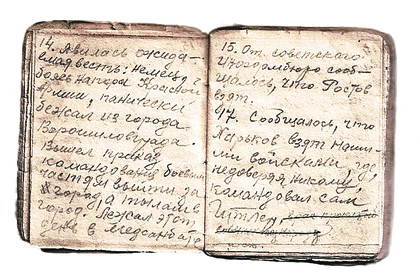 14. Явилась ожида-
емая весть: немец, не
более напора Красной
Армии, панически
бежал из города
Ворошиловграда.
Вышел приказ
командования боевым
частям выйти за
город, а тылам в
город. Лежал этот
день в Медсанбате
15. От советского
Информбюро сооб-
щалось, что Ростов
взят.
17. Сообщалось, что
Харьков взят наши-
ми войсками, где,
недоверяя никому,
командовал сам
Гитлер,